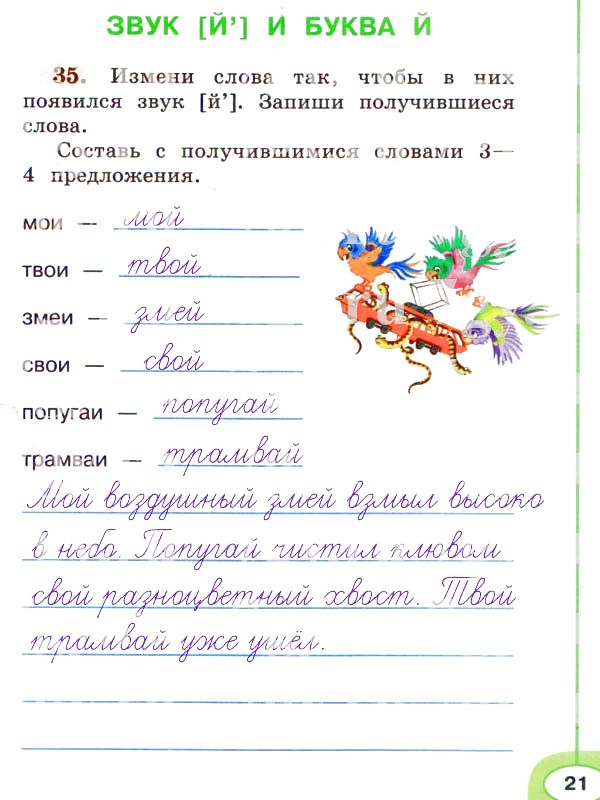 ЗВУК [Й’] И БУКВА Й
35. Измени слова так, чтобы в них
появился звук [й’]. Запиши получившиеся
слова.
Составь с получившимися словами 3—
4 предложения.
мои — мой
твои — твой
змеи — змей
свои — свой
попугаи — попугай
трамваи — трамвай
Мой воздушный змей взмыл высоко
в небо. Попугай чистил клювом
свой разноцветный хвост. Твой
трамвай уже ушёл.
21